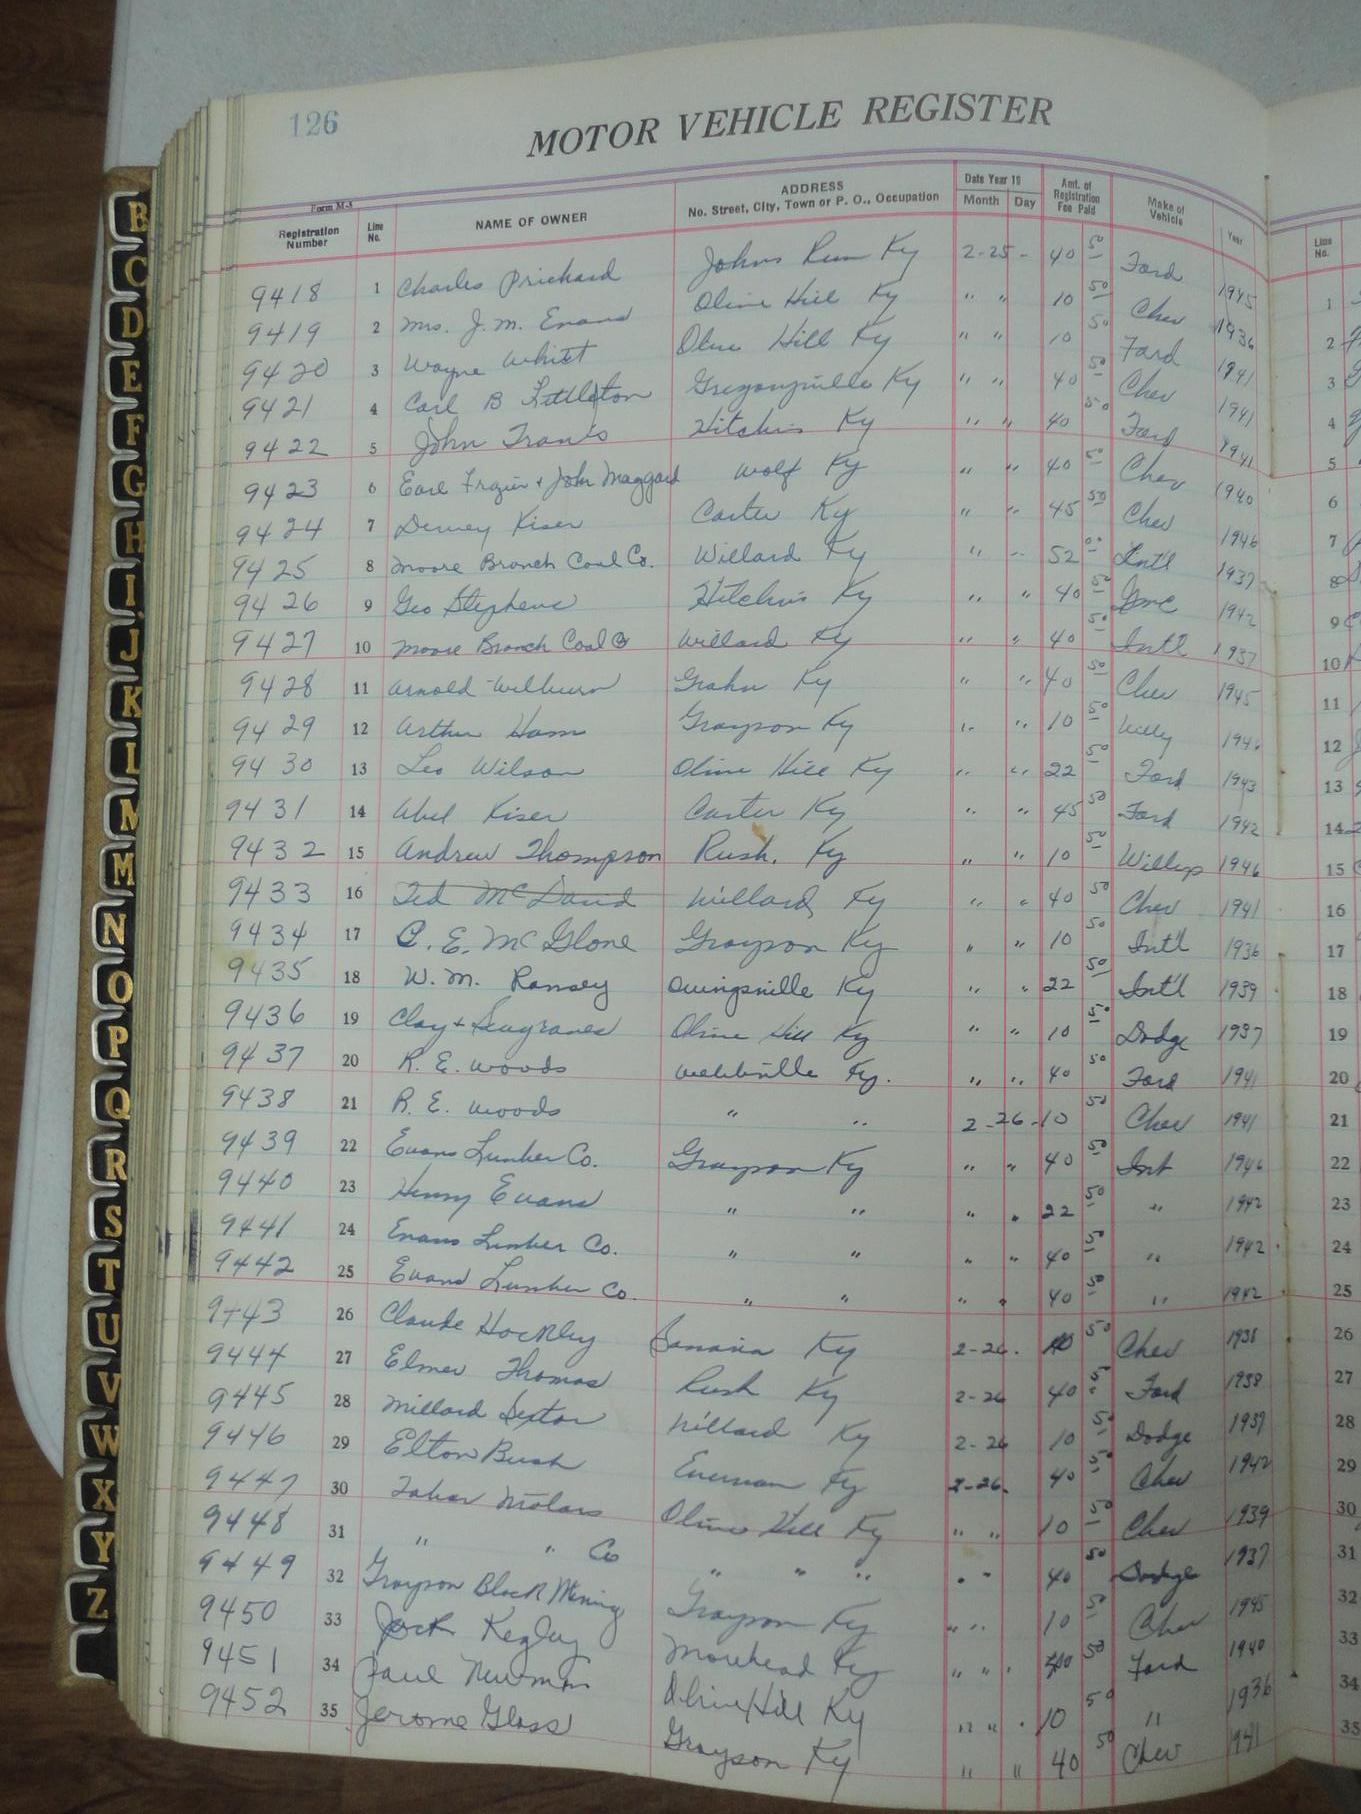 126
MOTOR VEHICLE REGISTER
Form M-5
Registration Number Line No. NAME OF OWNER ADDRESS No. Street, City, Town or P. O., Occupation Date Year 19 Month Day Amt. of Registration Fee Paid Make of Vehicle Year Line No.
9418 1 Charles Prichard Johns Run Ky 2-25- 40 50 Ford 1945 1
9419 2 Mrs. J. M. Evans Olive Hill Ky " " 10 50 Chev 1936 2
9420 3 Wayne Whitt Olive Hill Ky " " 10 50 Ford 1941 3
9421 4 Carl B Littleton Gregoryville Ky " " 40 50 Chev 1941 4
9422 5 John Travis Hitchins Ky " " 40 50 Ford 1941 5
9423 6 Earl Frazier + John Maggard Wolf Ky " " 40 50 Chev 1940 6
9424 7 Dewey Kiser Carter Ky " " 45 50 Chev 1946 7
9425 8 Moore Branch Coal Co. Willard Ky " " 52 00 Int'l 1937 8
9426 9 Geo Stephens Hitchins Ky " " 40 50 Gmc 1942 9
9427 10 Moore Branch Coal Co Willard Ky " " 40 50 Int'l 1937 10
9428 11 Arnold Wilburn Grahn Ky " " 40 50 Chev 1945 11
9429 12 Arthur Ham Grayson Ky " " 10 50 Willy 1946 12
9430 13 Leo Wilson Olive Hill Ky " " 22 50 Ford 1943 13
9431 14 Abel Kiser Carter Ky " " 45 50 Ford 1942 14
9432 15 Andrew Thompson Rush, Ky " " 10 50 Willys 1946 15
9433 16 Ted McDavid Willard, Ky " " 40 50 Chev 1941 16
9434 17 C. E. McGlone Grayson Ky " " 10 50 Int'l 1936 17
9435 18 W. M. Ramsey Owingsville Ky " " 22 50 Int'l 1939 18
9436 19 Clay + Seagraves Olive Hill Ky " " 10 50 Dodge 1937 19
9437 20 R. E. Woods Webbville Ky. " " 40 50 Ford 1941 20
9438 21 R. E. Woods " " 2-26- 10 50 Chev 1941 21
9439 22 Evans Lumber Co. Grayson Ky " " 40 50 Int 1946 22
9440 23 Henry Evans " " " " 22 50 " 1942 23
9441 24 Evans Lumber Co. " " " " 40 50 " 1942 24
9442 25 Evans Lumber Co. " " " " 40 50 " 1942 25
9443 26 Claude Ky 2-26. 50 Chev 1938 26
9444 27 Elmer Thomas Rush Ky 2-26 40 50 Ford 1938 27
9445 28 Millard Sexton Willard Ky 2-26 10 50 Dodge 1937 28
9446 29 Elton Bush Everman Ky 2-26. 40 50 Chev 1942 29
9447 30 Tabor Motors Olive Hill Ky " " 10 50 Chev 1939 30
9448 31 " " Co " " " " " 40 50 Dodge 1937 31
9449 32 Grayson Block Mining Grayson Ky " " 10 50 Chev 1945 32
9450 33 Jack Kegley Morehead Ky " " 50 Ford 1940 33
9451 34 Paul Newman Olive Hill Ky " " 10 50 " 1936 34
9452 35 Jerome Glass Grayson Ky " " 40 50 Chev 1941 35
B
C
D
E
F
G
H
I
J
K
L
M
M
N
O
P
Q
R
S
T
U
V
W
X
Y
Z